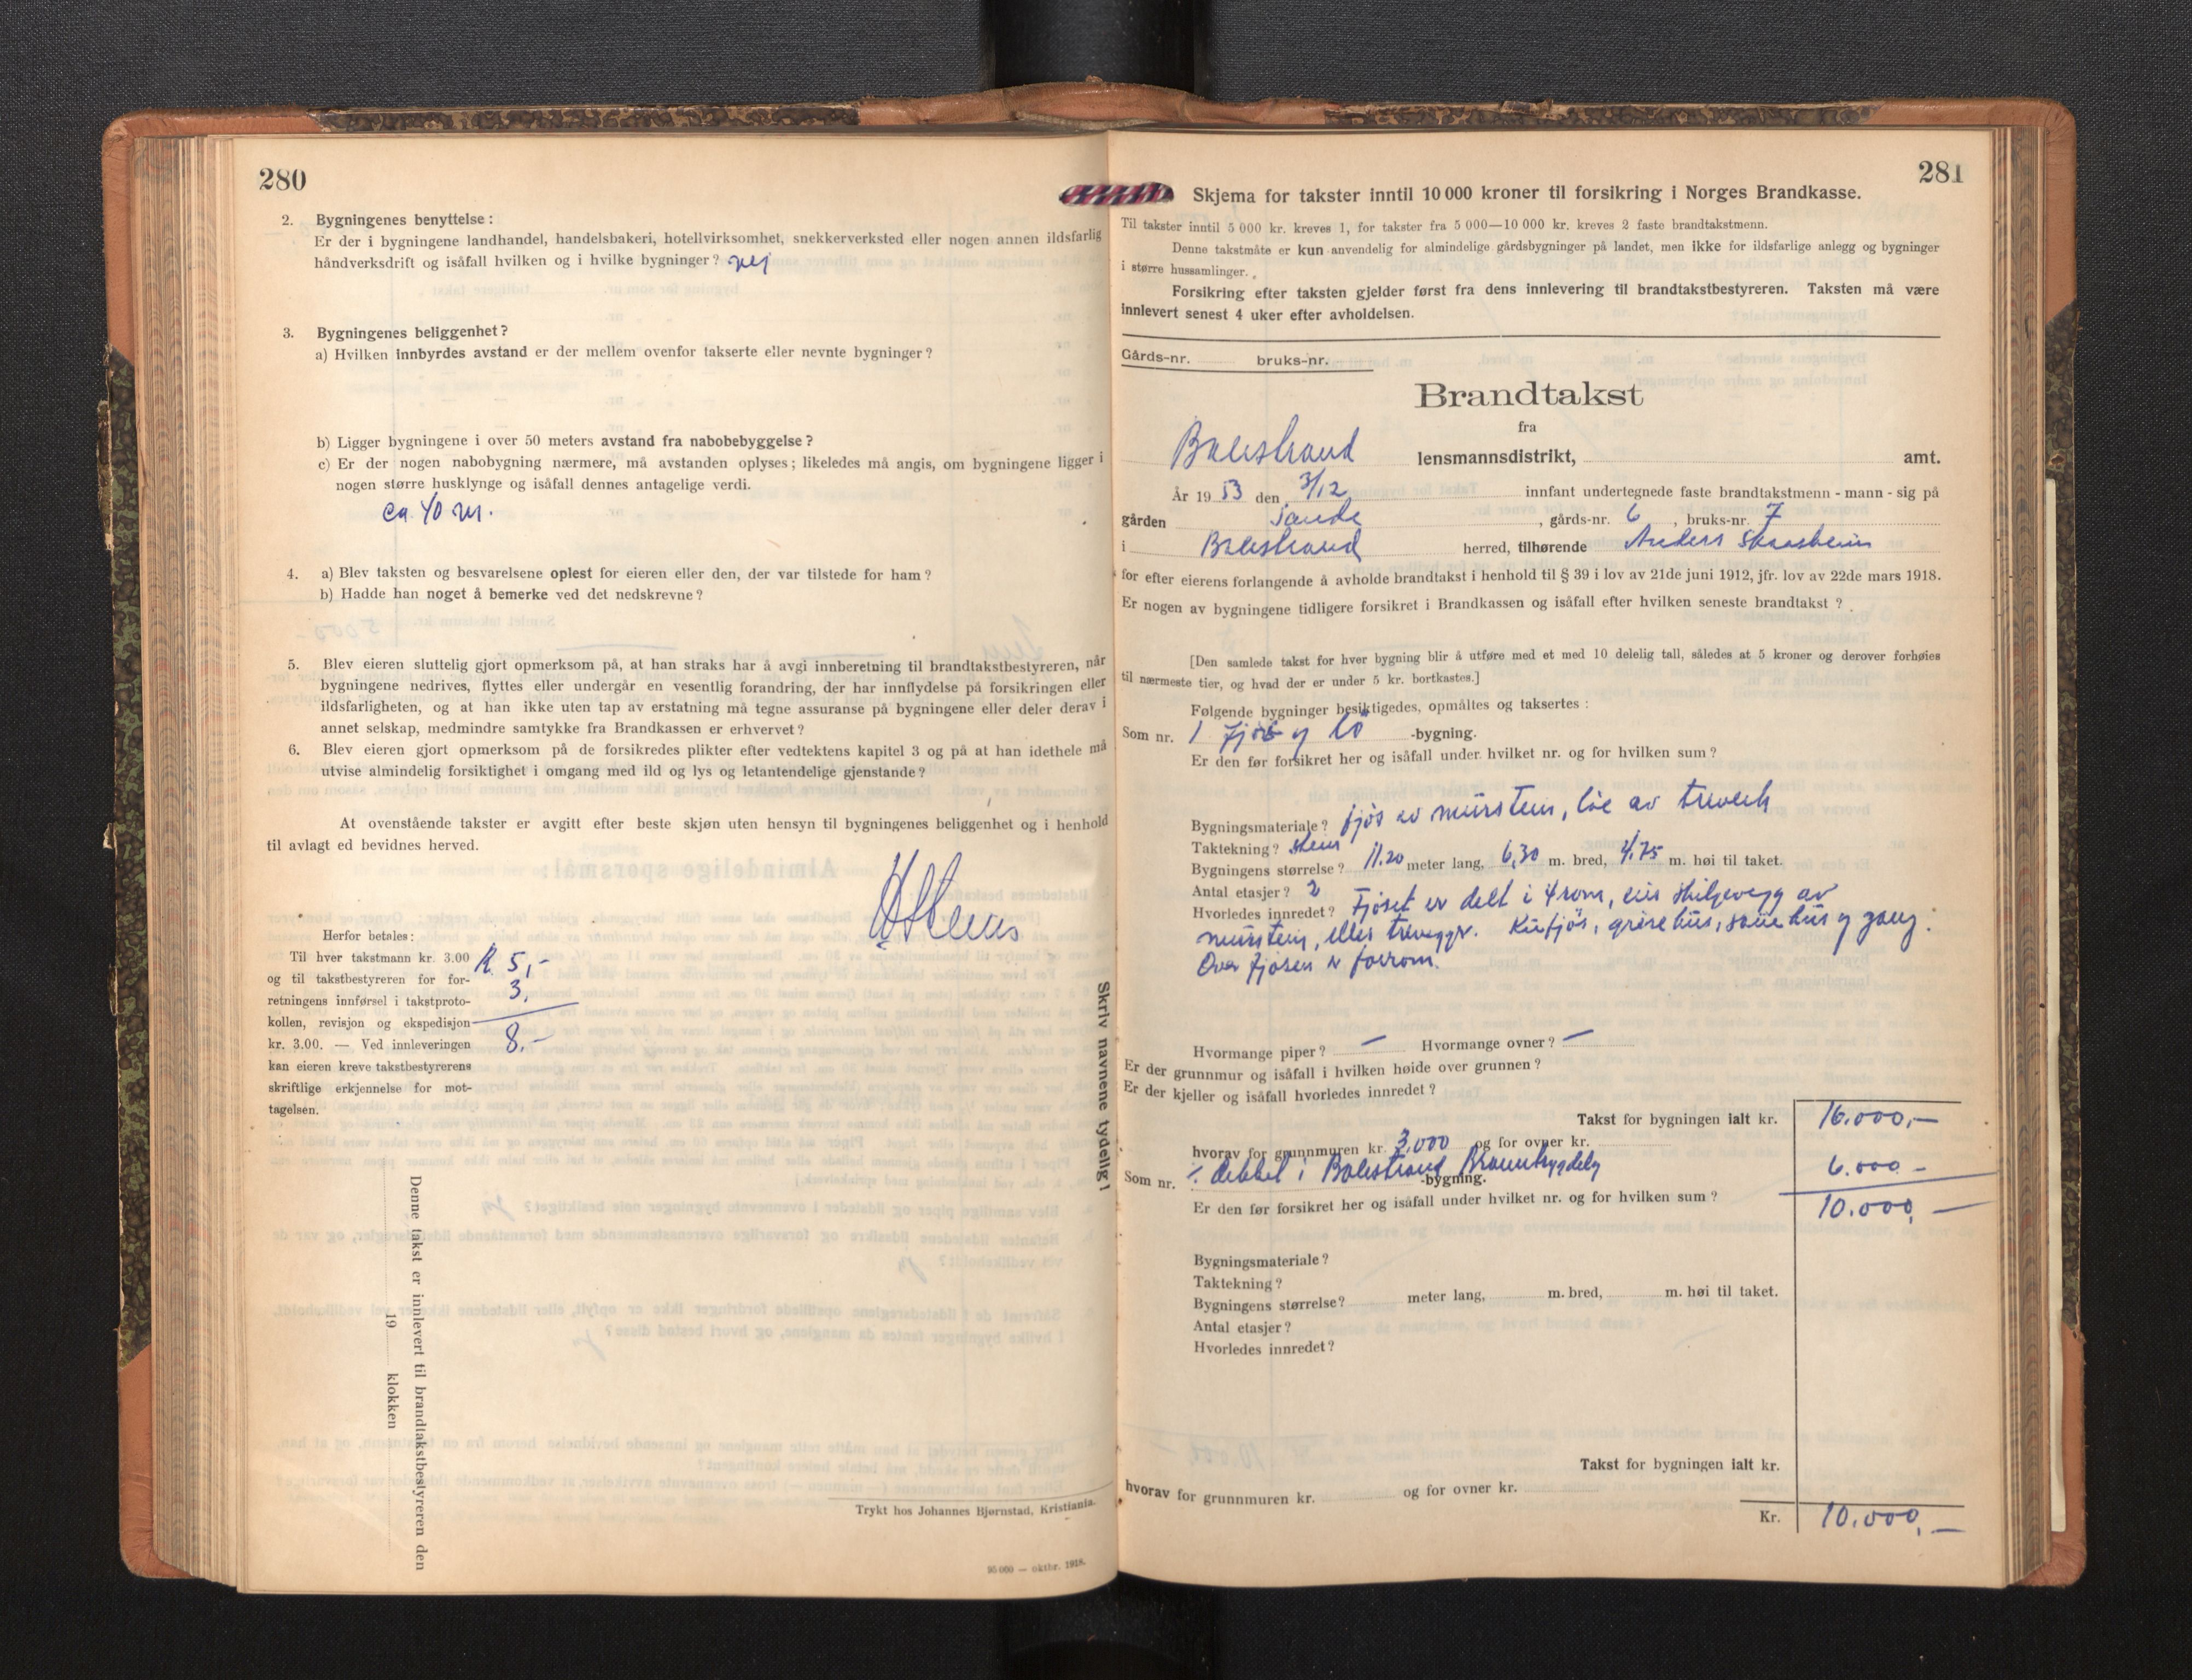 280
2. Bygningenes benyttelse:
Er der i bygningene landhandel, handelsbakeri, hotellvirksomhet, snekkerverksted eller nogen annen ildsfarlig
håndverksdrift og isåfall hvilken og i hvilke bygninger? nej
3. Bygningenes beliggenhet?
a) Hvilken innbyrdes avstand er der mellem ovenfor takserte eller nevnte bygninger?
b) Ligger bygningene i over 50 meters avstand fra nabobebyggelse?
c) Er der nogen nabobygning nærmere, må avstanden oplyses; likeledes må angis, om bygningene ligger i
nogen større husklynge og isåfall dennes antagelige verdi.
ca 40 m.
4. a) Blev taksten og besvarelsene oplest for eieren eller den, der var tilstede for ham?
b) Hadde han noget å bemerke ved det nedskrevne?
5. Blev eieren sluttelig gjort opmerksom på, at han straks har å avgi innberetning til brandtakstbestyreren, når
bygningene nedrives, flyttes eller undergår en vesentlig forandring, der har innflydelse på forsikringen eller
ildsfarligheten, og at han ikke uten tap av erstatning må tegne assuranse på bygningene eller deler derav i
annet selskap, medmindre samtykke fra Brandkassen er erhvervet?
6. Blev eieren gjort opmerksom på de forsikredes plikter efter vedtektens kapitel 3 og på at han idethele må
utvise almindelig forsiktighet i omgang med ild og lys og letantendelige gjenstande?
At ovenstående takster er avgitt efter beste skjøn uten hensyn til bygningenes beliggenhet og i henhold
til avlagt ed bevidnes herved.
Herfor betales:
Til hver takstmann kr. 3.00
og til takstbestyreren for for-
retningens innførsel i takstproto-
kollen, revisjon og ekspedisjon
kr. 3.00. — Ved innleveringen
kan eieren kreve takstbestyrerens
skriftlige erkjennelse for mot-
tagelsen.
5,-
3,
8,-
Denne takst er innlevert til brandtakstbestyreren den
19 klokken
Skriv navnene tydelig!
Trykt hos Johannes Bjørnstad, Kristiania.
95 000 — oktbr. 1918.
281
Skjema for takster inntil 10 000 kroner til forsikring i Norges Brandkasse.
Til takster inntil 5 000 kr. kreves 1, for takster fra 5 000—10 000 kr. kreves 2 faste brandtakstmenn.
Denne takstmåte er kun anvendelig for almindelige gårdsbygninger på landet, men ikke for ildsfarlige anlegg og bygninger
i større hussamlinger.
Forsikring efter taksten gjelder først fra dens innlevering til brandtakstbestyreren. Taksten må være
innlevert senest 4 uker efter avholdelsen.
Gårds-nr. bruks-nr.
Brandtakst
fra
Balestrand lensmannsdistrikt, amt.
År 1953 den 3/12 innfant undertegnede faste brandtakstmenn - mann - sig på
gården Sande, gårds-nr. 6, bruks-nr. 7
i Balestrand herred, tilhørende Anders Skaasheim
for efter eierens forlangende å avholde brandtakst i henhold til § 39 i lov av 21de juni 1912, jfr. lov av 22de mars 1918.
Er nogen av bygningene tidligere forsikret i Brandkassen og isåfall efter hvilken seneste brandtakst?
[Den samlede takst for hver bygning blir å utføre med et med 10 delelig tall, således at 5 kroner og derover forhøies
til nærmeste tier, og hvad der er under 5 kr. bortkastes.]
Følgende bygninger besiktigedes, opmåltes og taksertes:
Som nr. 1 Fjøs og lö -bygning.
Er den før forsikret her og isåfall under hvilket nr. og for hvilken sum?
Bygningsmateriale? fjøs av murstein, löe av treverk
Taktekning? skeis
Bygningens størrelse? 11.20 meter lang, 6,30 m. bred, 4,75 m. høi til taket.
Antal etasjer? 2
Hvorledes innredet? Fjøset er delt i 4 rom, ein skiljevegg av
murstein, elles trevegger. Kufjøs, grisehus, sauehus og gang.
Over fjøsen er forrom.
Hvormange piper? — Hvormange ovner? —
Er der grunnmur og isåfall i hvilken høide over grunnen?
Er der kjeller og isåfall hvorledes innredet?
Takst for bygningen ialt kr. 16.000,—
hvorav for grunnmuren kr. 3.000 og for ovner kr.
Som nr. ÷ dekket i Balestrand Branntrygdelag -bygning. 6.000 —
Er den før forsikret her og isåfall under hvilket nr. og for hvilken sum? 10.000,—
Bygningsmateriale?
Taktekning?
Bygningens størrelse? meter lang, m. bred, m. høi til taket.
Antal etasjer?
Hvorledes innredet?
Takst for bygningen ialt kr.
hvorav for grunnmuren kr. og for ovner kr.
Kr. 10.000,—